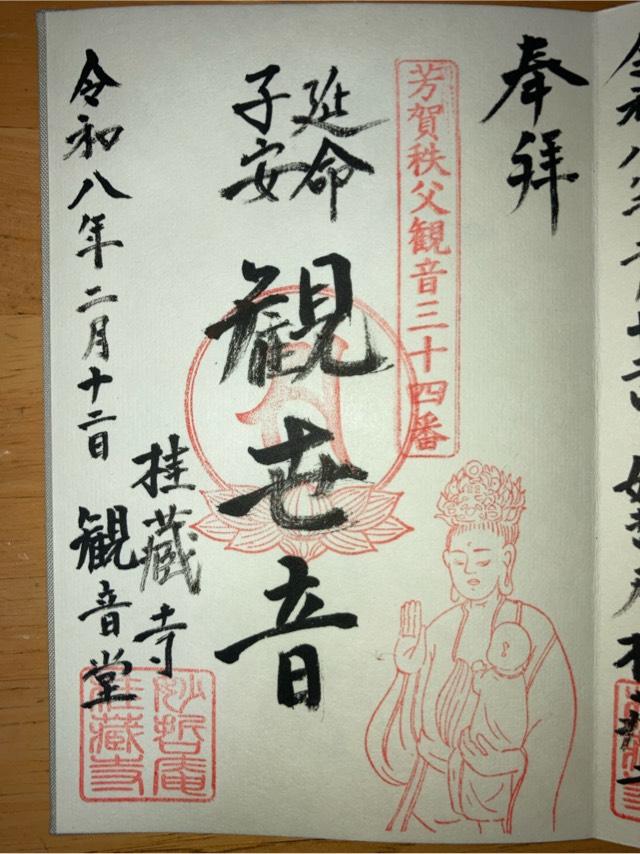 奉拝
芳賀秩父観音三十四番
延命
子安
観世音
桂蔵寺
観音堂
令和八年二月十二日
妙哲庵
桂蔵寺